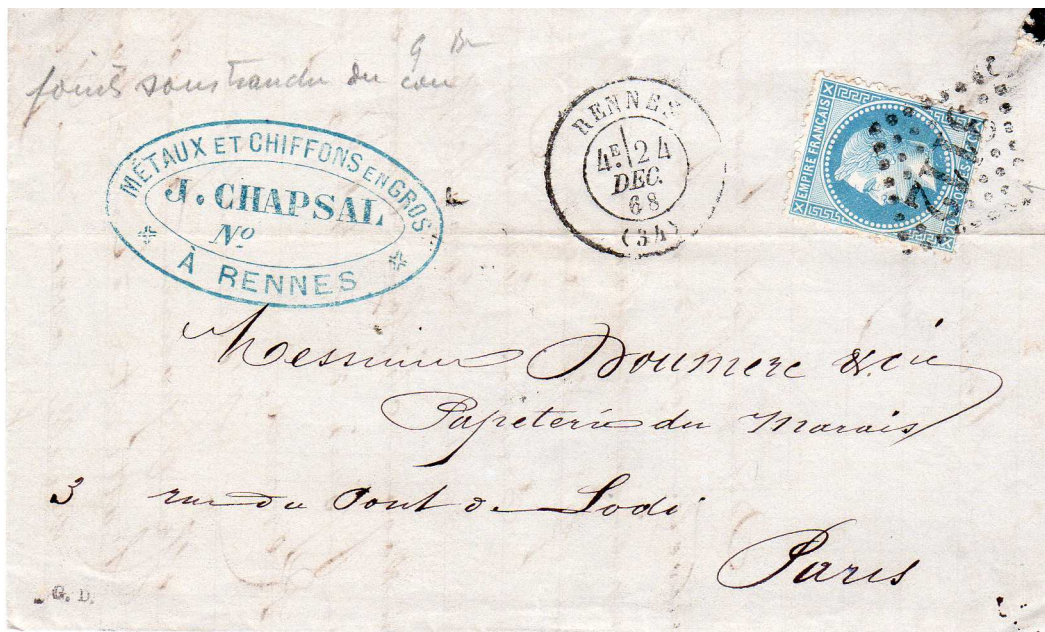 9 Bre
points sous tranche du cou
MÉTAUX ET CHIFFONS EN GROS
J. CHAPSAL
Nº
À RENNES
RENNES
4E 24
DEC.
68
(34)
EMPIRE FRANÇAIS
Messieurs Doumerc & cie
Papeterie du Marais
3 rue du Pont de Lodi
Paris
G. D.